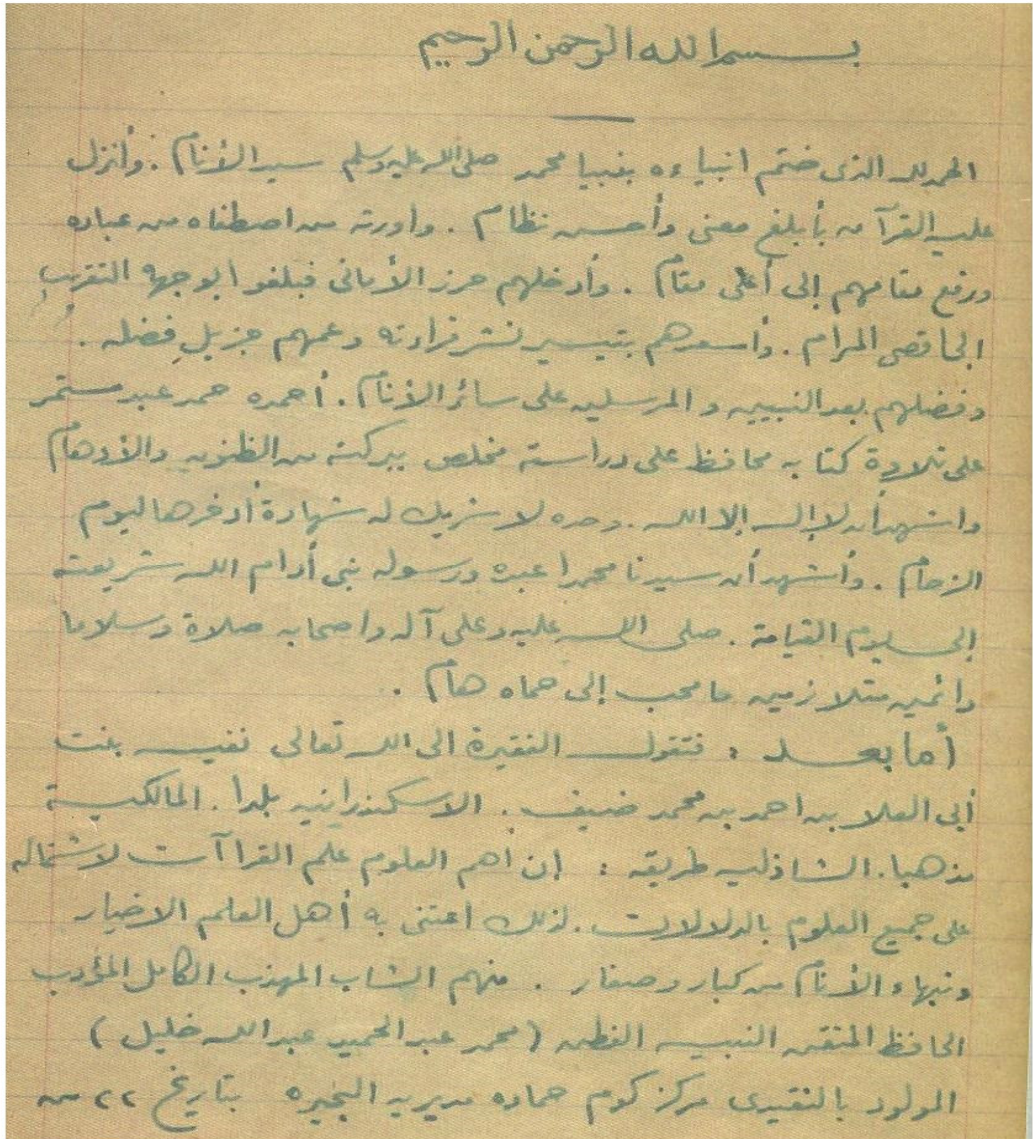 بسم الله الرحمن الرحيم
الحمد لله الذى ختم انبياءه بنبينا محمد صلى الله عليه وسلم سيد الأنام . وأنزل
عليه القرآن بأبلغ معنى وأحسن نظام . وأورثه من اصطفاه من عباده
ورفع مقامهم إلى أعلى مقام . وأدخلهم حرز الأمانى فبلغوا بوجه التقريب
الى اقصى المرام . وأسعدهم بتيسير نشر قراءته وعمهم جزيل فضله .
وفضلهم بعد النبيين والمرسلين على سائر الأنام . أحمده حمد عبد مستمر
على تلاوة كتابه محافظ على دراسته مخلص ببركته من الظنون والأوهام
واشهد أن لا إله إلا الله . وحده لا شريك له شهادة أدخرها ليوم
الزحام . وأشهد أن سيدنا محمدا عبده ورسوله نبى أدام الله شريعته
إلى يوم القيامة . صلى الله عليه وعلى آله واصحابه صلاة وسلاما
دائمين متلازمين ما محب إلى حماه هام .
أما بعد : فتقول الفقيرة الى الله تعالى نفيسه بنت
أبى العلا بن احمد بن محمد ضيف . الاسكندرانيه بلدا . المالكية
مذهبا . الشاذليه طريقه : إن أهم العلوم علم القراآت لاشتماله
على جميع العلوم بالدلالات . لذلك اعتنى به أهل العلم الاخيار
ونبهاء الأنام من كبار وصغار . منهم الشاب المهذب الكامل المؤدب
الحافظ المتقن النبيه الفطن (محمد عبد الحميد عبد الله خليل)
المولود بالنقيدى مركز كوم حماده مديريه البحيره بتاريخ ٢٢ من